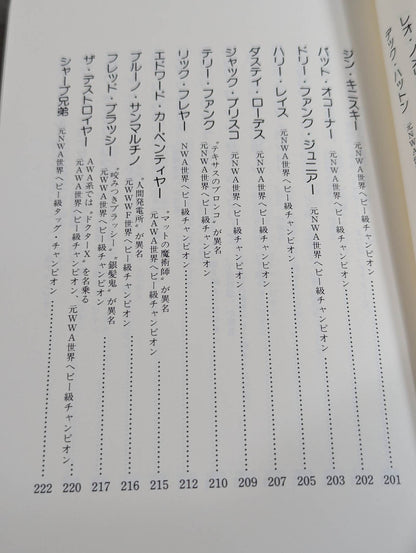 レオ・ノ
ディック・ハットン
ジン・キニスキー 元NWA世界ヘビー級チャンピオン 201
パット・オコーナー 元NWA世界ヘビー級チャンピオン 202
ドリー・ファンク・ジュニアー 元NWA世界ヘビー級チャンピオン 203
ハリー・レイス 元NWA世界ヘビー級チャンピオン 205
ダスティ・ローデス 元NWA世界ヘビー級チャンピオン 207
ジャック・ブリスコ 元NWA世界ヘビー級チャンピオン 209
テリー・ファンク “テキサスのブロンコ”が異名
元NWA世界ヘビー級チャンピオン 210
リック・フレヤー NWA世界ヘビー級チャンピオン 212
エドワード・カーペンティヤー “マットの魔術師”が異名
元AWA世界ヘビー級チャンピオン 215
ブルーノ・サンマルチノ “人間発電所”が異名
元WWWF世界ヘビー級チャンピオン 216
フレッド・ブラッシー “咬みつきブラッシー”“銀髪鬼”が異名
元WWA世界ヘビー級チャンピオン 217
ザ・デストロイヤー AWA系では“ドクターX”を名乗る
元AWA世界ヘビー級チャンピオン、元WWA世界ヘビー級チャンピオン 220
シャープ兄弟 元NWA世界ヘビー級タッグ・チャンピオン 222